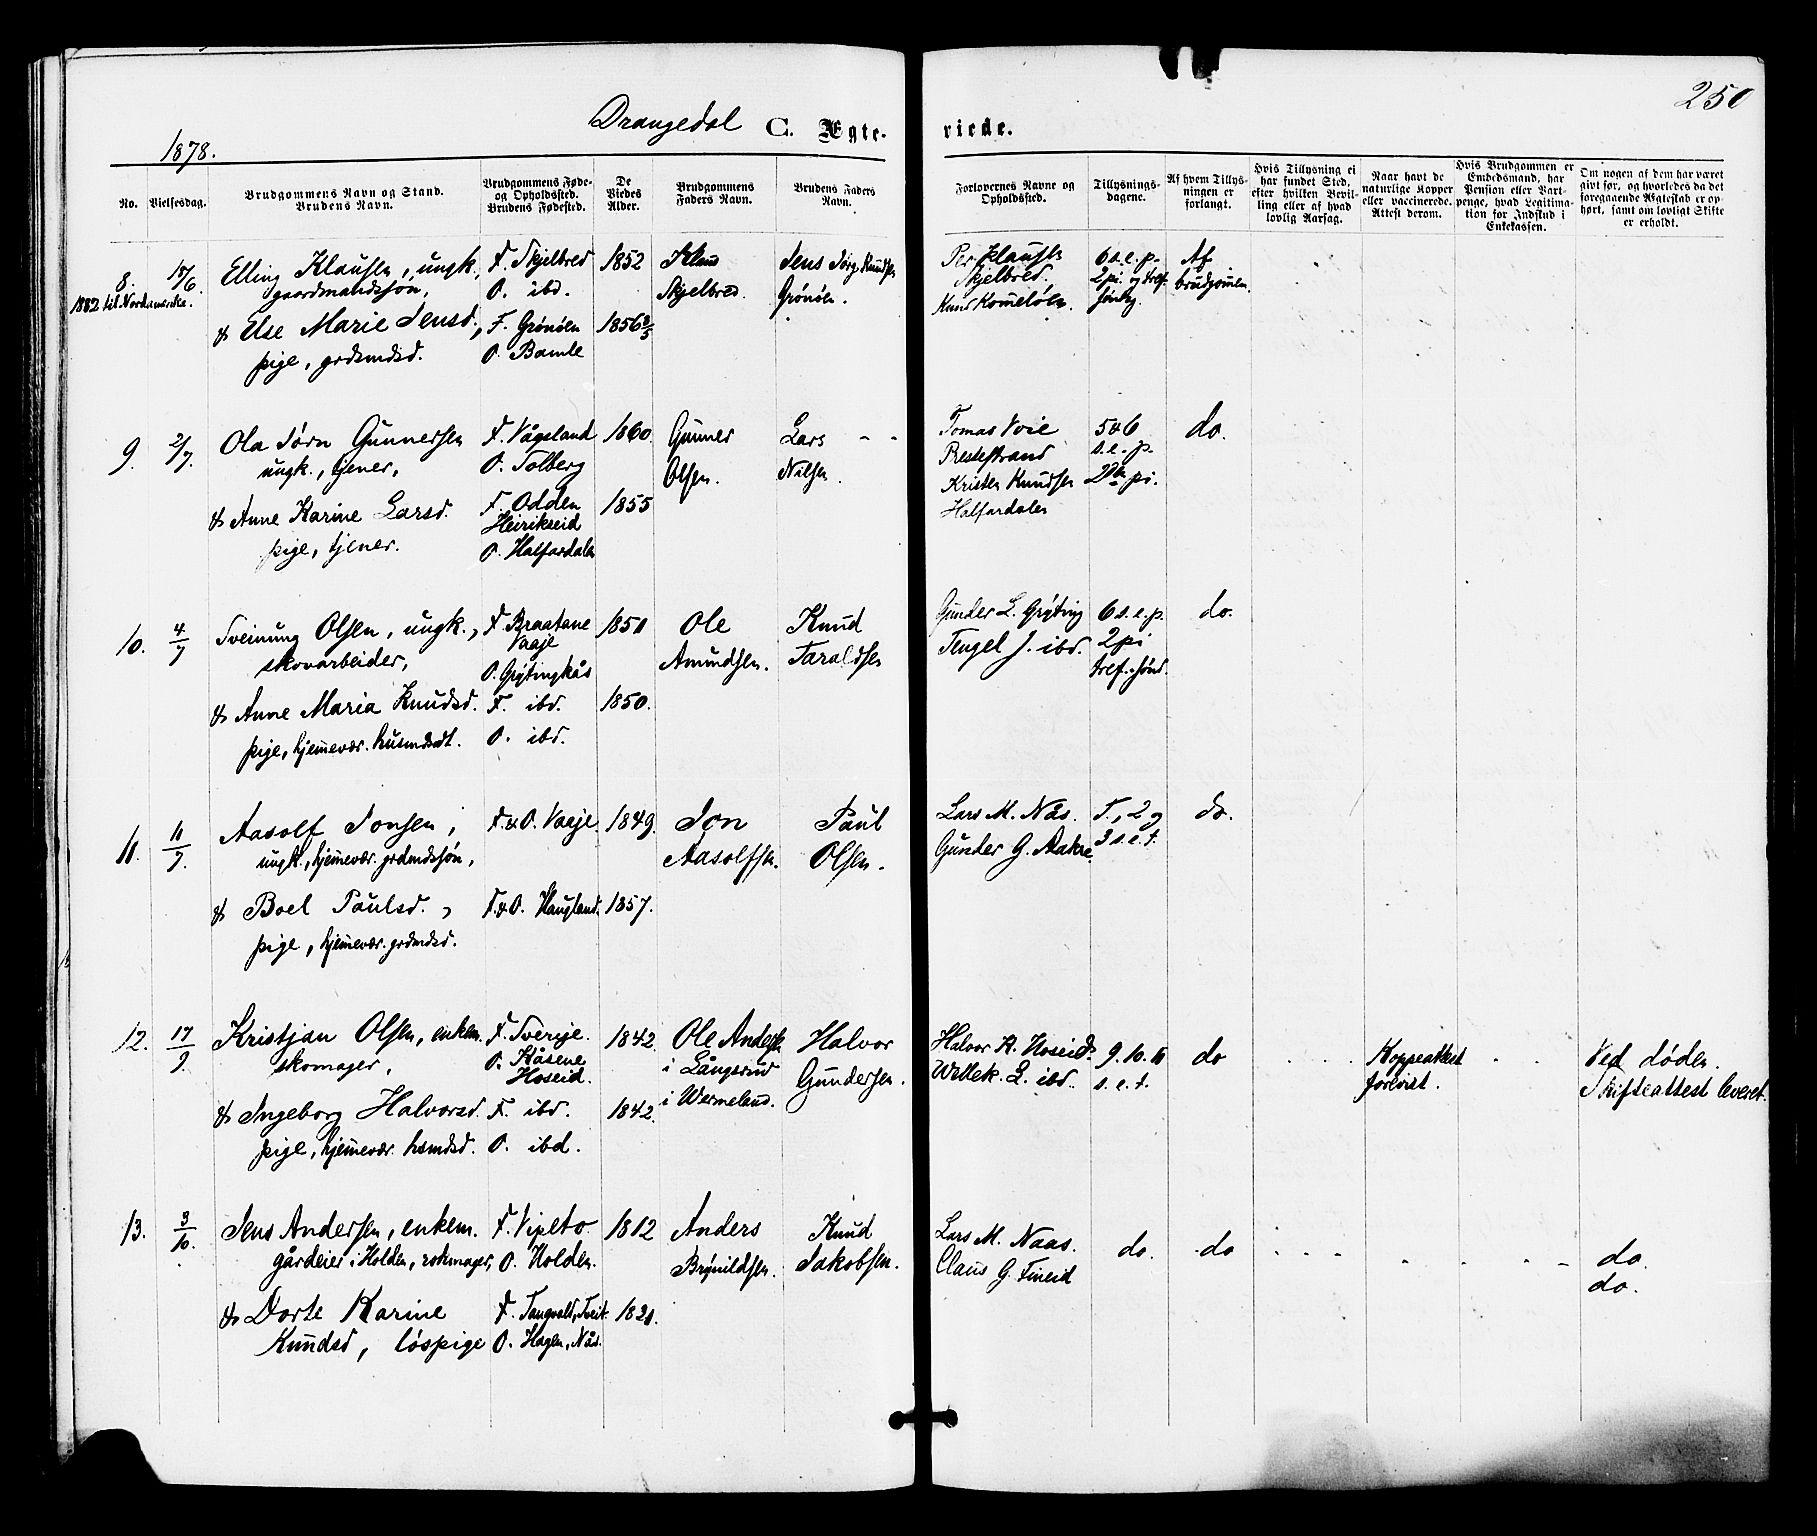 250
Drangedal C. Egte- viede.
1878.
No.
Vielsesdag.
Brudgommens Navn og Stand.
Brudens Navn.
Brudgommens Føde-
og Opholdssted.
Brudens Fødested.
De
Viedes
Alder.
Brudgommens
Faders Navn.
Brudens Faders
Navn.
Forlovernes Navne og
Opholdssted.
Tillysnings-
dagene.
Af hvem Tillys-
ningen er
forlangt.
Hvis Tillysning ei
har fundet Sted,
efter hvilken Bevil-
ling eller af hvad
lovlig Aarsag.
Naar havt de
naturlige Kopper
eller vaccinerede.
Attest derom.
Hvis Brudgommen er
Embedsmand, har
Pension eller Vart-
penge, hvad Legitima-
tion for Indskud i
Enkekassen.
Om nogen af dem har været
gift før, og hvorledes da det
foregaaende Ægteskab er op-
hørt, samt om lovligt Skifte
er erholdt.
8. 18/6. Elling Klausen, ungk., F. Skjelbred 1852 Klaus Jens Jørg. Knudsen
1882 til Nordamerika. gaardmandssøn, O. ibd. Skjelbred. Grönöen.
& Else Marie Jensd., F. Grönöen 1856
pige, grdmdsd. O. Bamle
Per Klausen 6 s.e.p. Af
Skjelbred. 2 pi. og tref. brudgomen.
Knud
9. 2/7. Ola Jørn Gunnersen F. Vågsland 1860. Gunner Lars
ungk., tjener, O. Tolberg Olsen. Nilsen.
& Anne Karine Larsd. F. Odden 1855
Heirikseid
pige, tjener. O. Halfardalen
Tomas Voie 5 & 6 do.
Prestestrand s.e.p.
Kristen Knudsen 2den pi.
Halfardalen
10. 4/7 Tveinung Olsen, ungk., F. Braatane 1851 Ole Knud
Vaaje
skovarbeider, O. Grytingkås Amundsen. Taraldsen
& Anne Maria Knudsd. F. ibd. 1850.
pige, hjemevær. husmdsdt. O. ibd.
Gunder L. Gryting 6 s.e.p. do.
Tengel J. ibd. 2 pi
tref. sönd.
11. 11/9. Aasolf Jonsen, F. & O. Vaaje. 1849. Jon Paul
ungk., hjemevær. grdmdssøn, Aasolfsen. Olsen.
& Boel Paulsd., F. & O. Haugland. 1857.
pige, hjemevær. grdmdsd.
Lars M. Nås. T., 2 og do.
Gunder G. Aakre. 3 s.e.t.
12. 17/9. Kristjan Olsen, enkem. F. Sverige. 1842. Ole Andersen Halvor
skomager, O. Kåsene i Långsrud Gundersen.
Hoseid.
& Ingeborg Halvorsd. F. ibd. 1842. i Wermeland.
pige, hjemevær. hsmdsd. O. ibd.
Halvor R. Hoseid. 9. 10. 11 do Koppeattest Ved döden.
Wellek. L. ibd. s.e.t. forevist. Skifteattest leveret.
13. 3/10. Jens Andersen, enkem. F. Vipeto 1812 Anders Knud
gårdeier i Holden, rokmager, O. Holden. Brynildsen. Jakobsen.
& Dorte Karine F. Tangvald, Tveit. 1821.
Knudsd, löspige O. Hagen, Nås.
Lars M. Naas. do. do do.
Claus G. Fineid do.